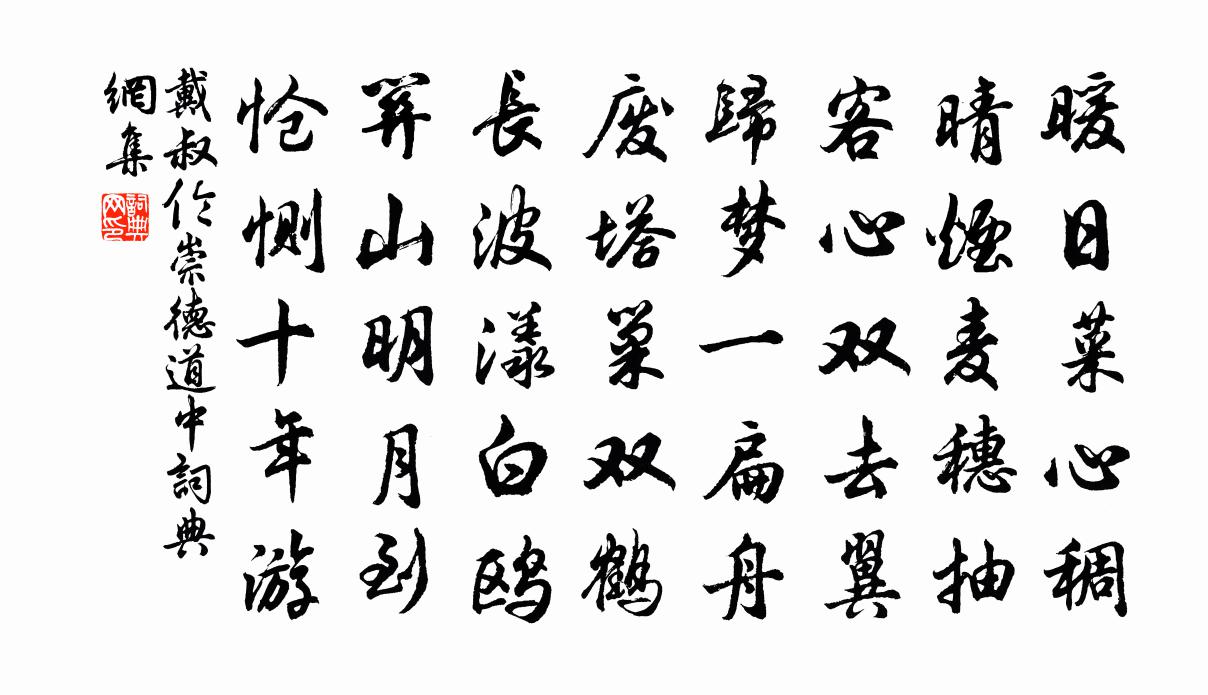 暖日菜心稠
晴煙麦穗抽
客心双去翼
歸梦一扁舟
废塔巢双鹤
長波漾白鸥
関山明月到
怆恻十年游
戴叔伦崇德道中詞典
網集
詞典网印